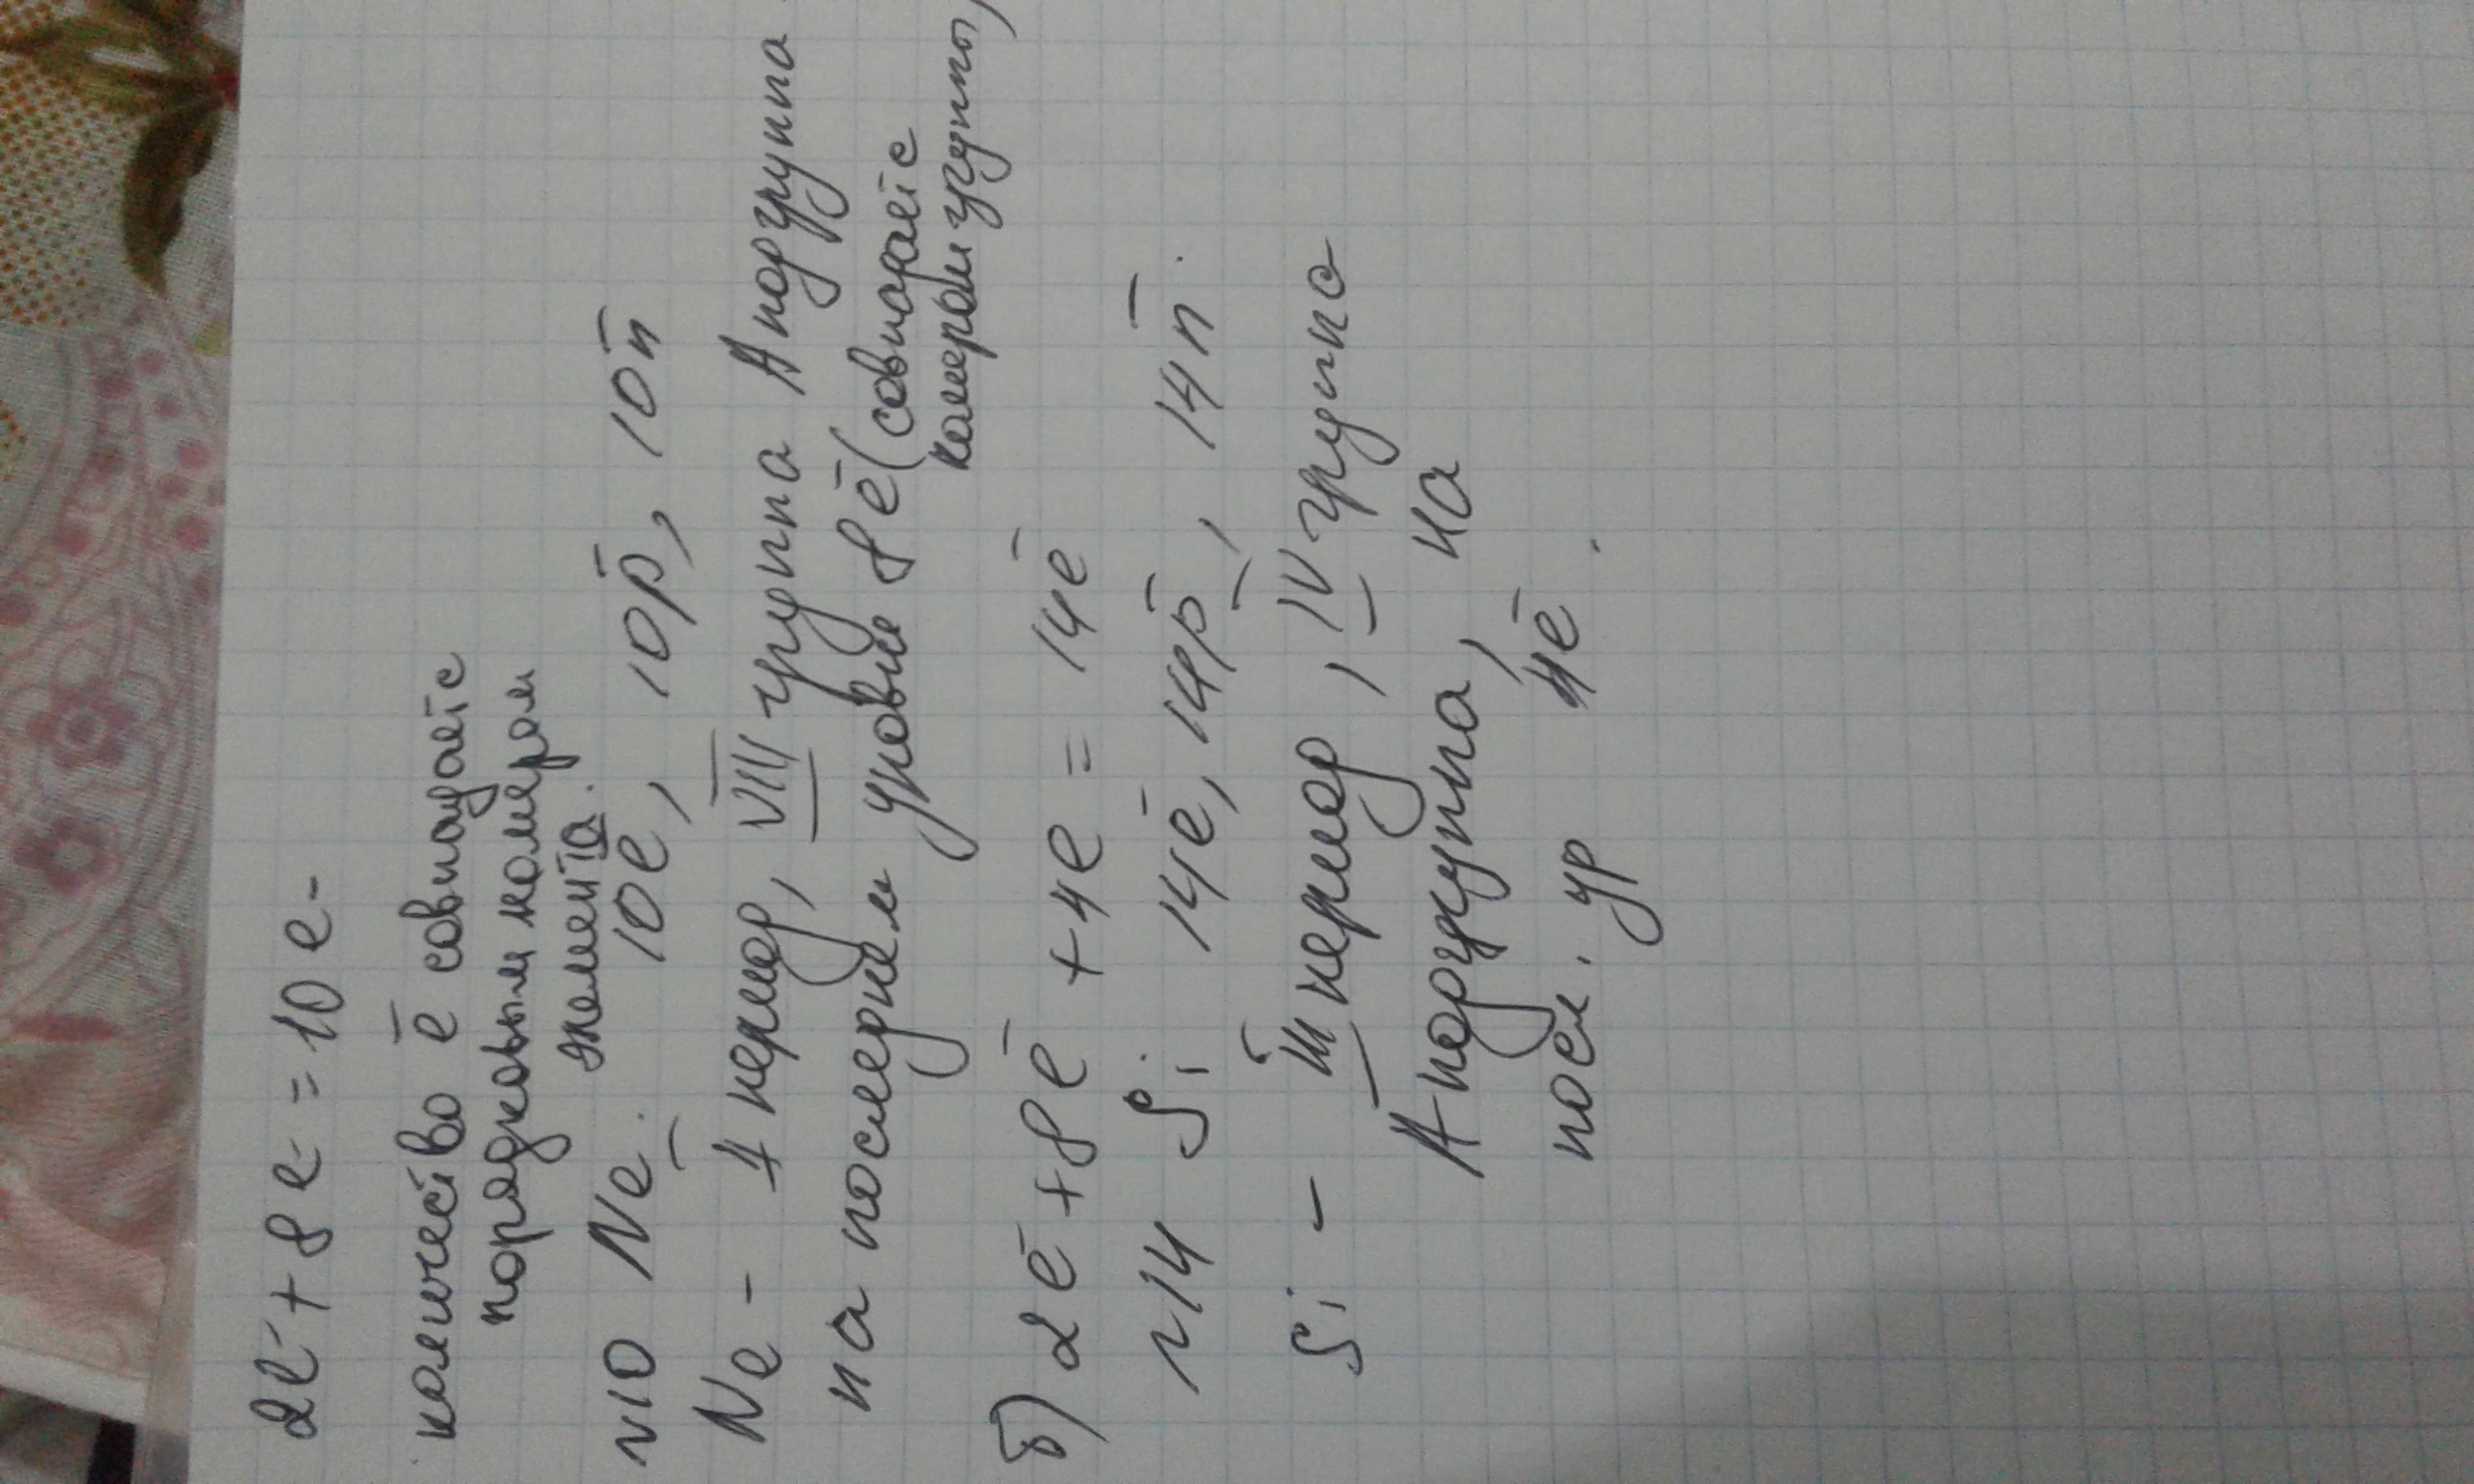 2e⁻ + 8e⁻ = 10e-
количество ē совпадает с
порядковым номером
элемента.
N10 Ne. 10e, 10p̄, 10n̄
Ne - 1 период, VIII группа А подгруппа
на последнем уровне 8ē (совпадает с
номером группы)
б) 2ē + 8ē + 4e = 14ē
N14 Si 14ē, 14p̄, 14n̄.
Si - III период, IV группа
А подгруппа, на
посл. ур 4ē.